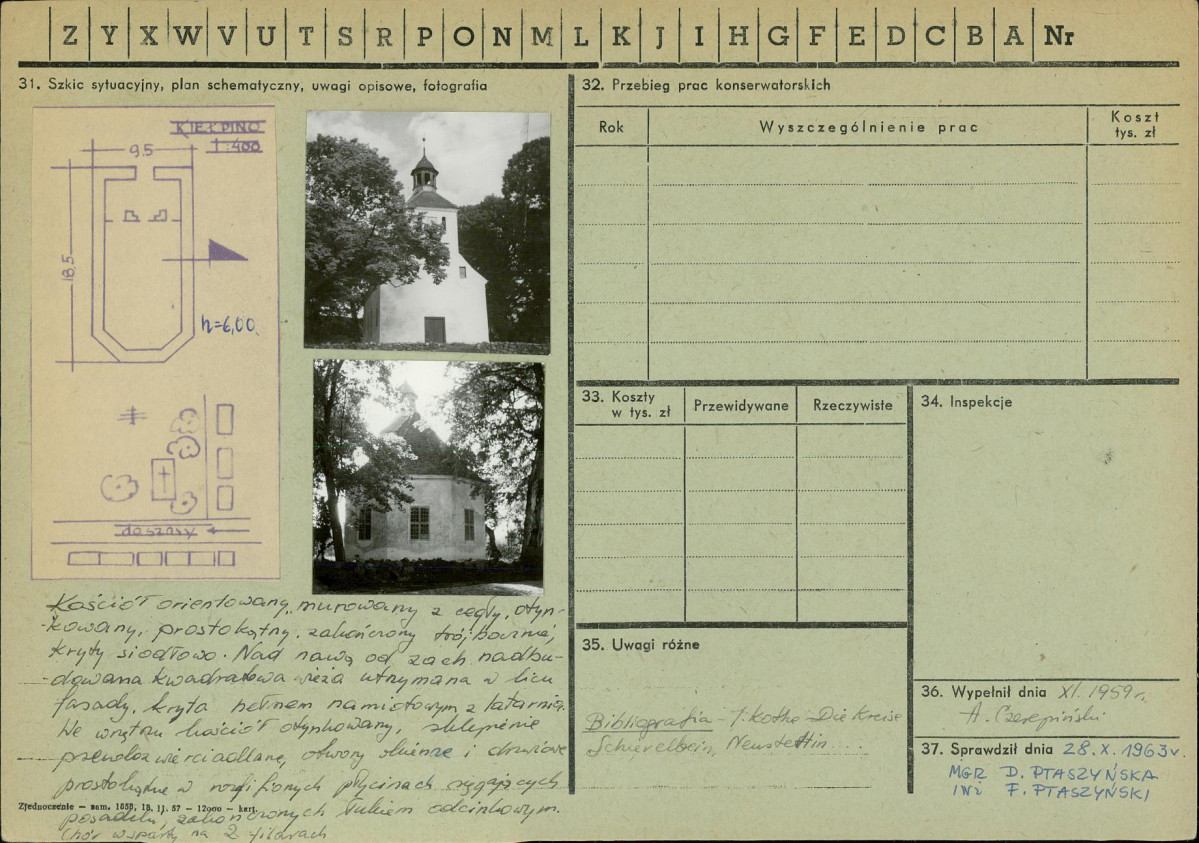 Z Y X W V U T S R P O N M L K J I H G F E D C B A Nr
31. Szkic sytuacyjny, plan schematyczny, uwagi opisowe, fotografia
KIEŁPINO
1:400
9.5
18,5
h=6,00.
do szosy
Kościół orientowany, murowany z cegły, otyn-
-kowany, prostokątny, zakończony trójbocznie,
kryty siodłowo. Nad nawą od zach nadbu-
dowana kwadratowa wieża utrzymana w licu
fasady, kryta hełmem namiotowym z latarnią.
We wnętrzu kościół otynkowany, sklepienie
zwierciadlane, otwory okienne i drzwiowe
prostokątne w płycinach sięgających
posadzki, zakończonych łukiem odcinkowym.
Chór wsparty na 2 filarach
Zjednoczenie — zam. 1658, 18. 11. 57 — 12000 — kart.
32. Przebieg prac konserwatorskich
Rok
Wyszczególnienie prac
Koszt
tys. zł
33. Koszty
w tys. zł
Przewidywane
Rzeczywiste
34. Inspekcje
35. Uwagi różne
Bibliografia - Kothe - Die Kreise
Schievelbein, Neustettin...
36. Wypełnił dnia XI. 1959 r.
A. Czerepiński
37. Sprawdził dnia 28. X. 1963 r.
MGR D. PTASZYŃSKA
INŻ F. PTASZYŃSKI